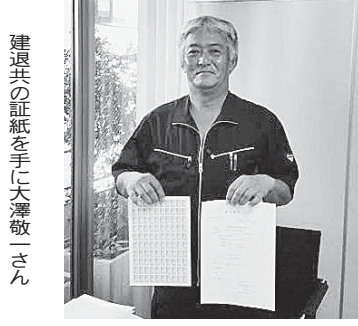 建退共の証紙を手に大澤敬一さん